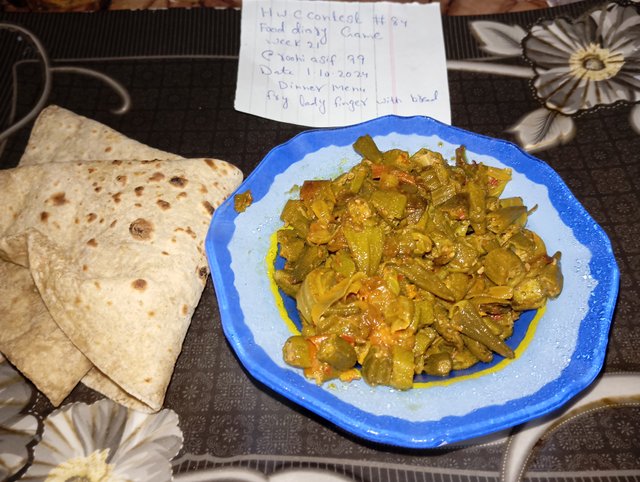 HWC contest #84
Food diary Game
Week 21
@roohi asif 99
Date 1.10.2024
Dinner Menu
fry lady finger with bread